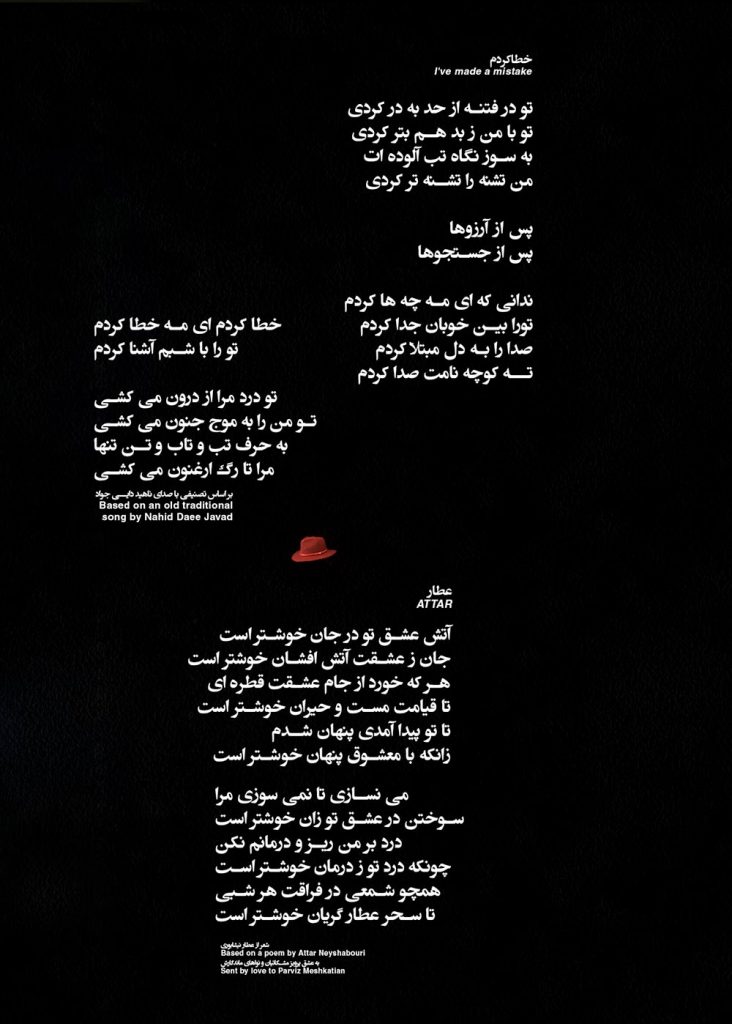 خطاکردم
I've made a mistake
تو در فتنه از حد به در کردی
تو با من ز بد هم بتر کردی
به سوز نگاه تب آلوده ات
من تشنه را تشنه تر کردی
پس از آرزوها
پس از جستجوها
ندانی که ای مه چه ها کردم
تورا بین خوبان جدا کردم
صدا را به دل مبتلا کردم
ته کوچه نامت صدا کردم
خطا کردم ای مه خطا کردم
تو را با شبم آشنا کردم
تو درد مرا از درون می کشی
تو من را به موج جنون می کشی
به حرف تب و تاب و تن تنها
مرا تا رگ ارغنون می کشی
بر اساس تصنیفی با صدای ناهید دایی جواد
Based on an old traditional
song by Nahid Daee Javad
عطار
ATTAR
آتش عشق تو در جان خوشتر است
جان ز عشقت آتش افشان خوشتر است
هر که خورد از جام عشقت قطره ای
تا قیامت مست و حیران خوشتر است
تا تو پیدا آمدی پنهان شدم
زانکه با معشوق پنهان خوشتر است
می نسازی تا نمی سوزی مرا
سوختن در عشق تو زان خوشتر است
درد بر من ریز و درمانم نکن
چونکه درد تو ز درمان خوشتر است
همچو شمعی در فراقت هر شبی
تا سحر عطار گریان خوشتر است
شعر از عطار نیشابوری
Based on a poem by Attar Neyshabouri
به عشق پرویز مشکاتیان و نواهای ماندگارش
Sent by love to Parviz Meshkatian